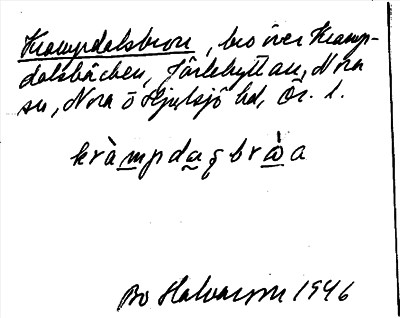 Krampdalsbron, bro över Kramp-
dalsbäcken, Järlehyttan, Nora
sn, Nora o Hjulsjö hd, Ör. l.
kràmpdaʂbrὼa
Bo Halvarson 1946